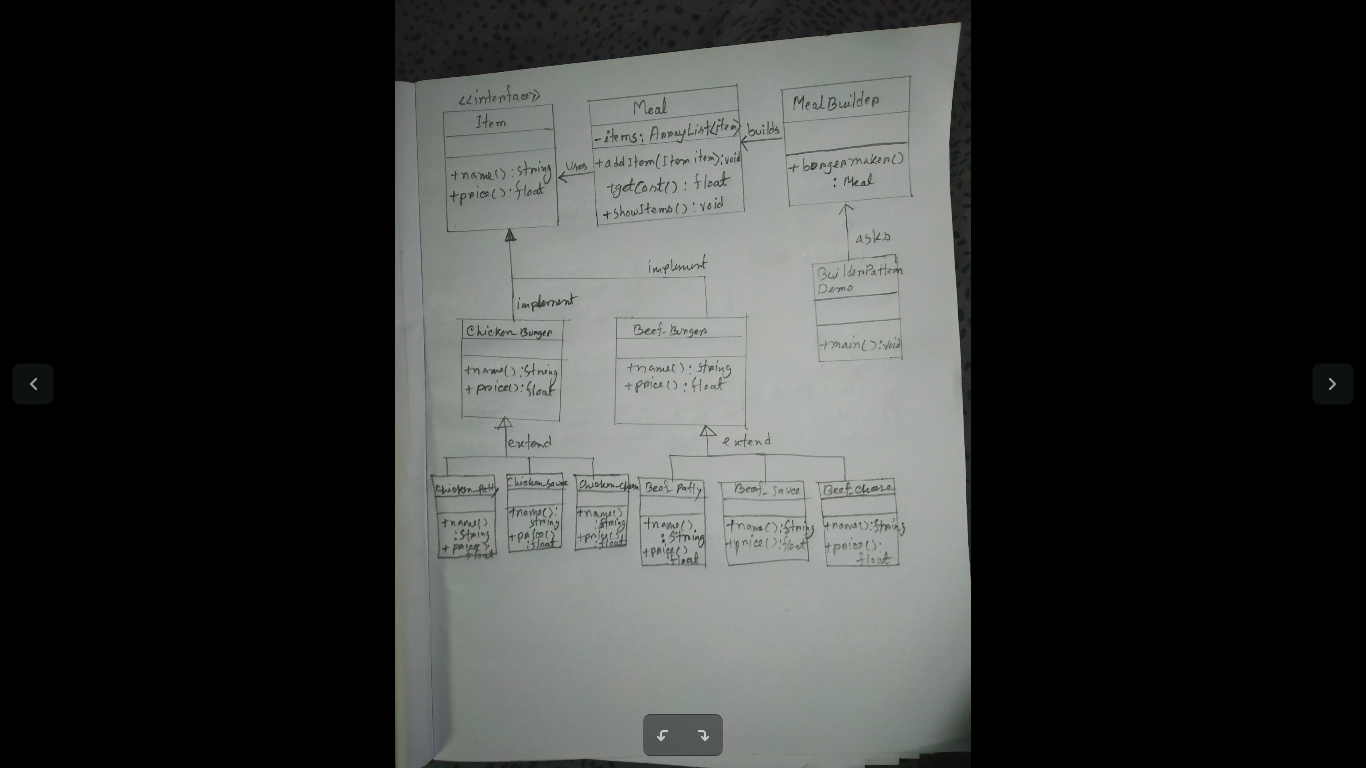 <<interface>>
Item
+name() : string
+price() : float
uses
Meal
-items: ArrayList<item>
+addItem(Item item):void
+getCost() : float
+showItems() : void
builds
MealBuilder
+burgermaker()
: Meal
asks
BuilderPattern
Demo
+main():void
implement
implement
Chicken_Burger
+name():String
+price():float
Beef_Burger
+name() : String
+price() : float
extend
extend
Chicken_Patty
+name()
:String
+price():
float
Chicken_Sauce
+name():
string
+price()
:float
+name():
String
+price()
:float
Beef_Patty
+name()
:String
+price()
:float
Beef_Sauce
+name():String
+price():float
Beef_chese
+name():String
+price():
float